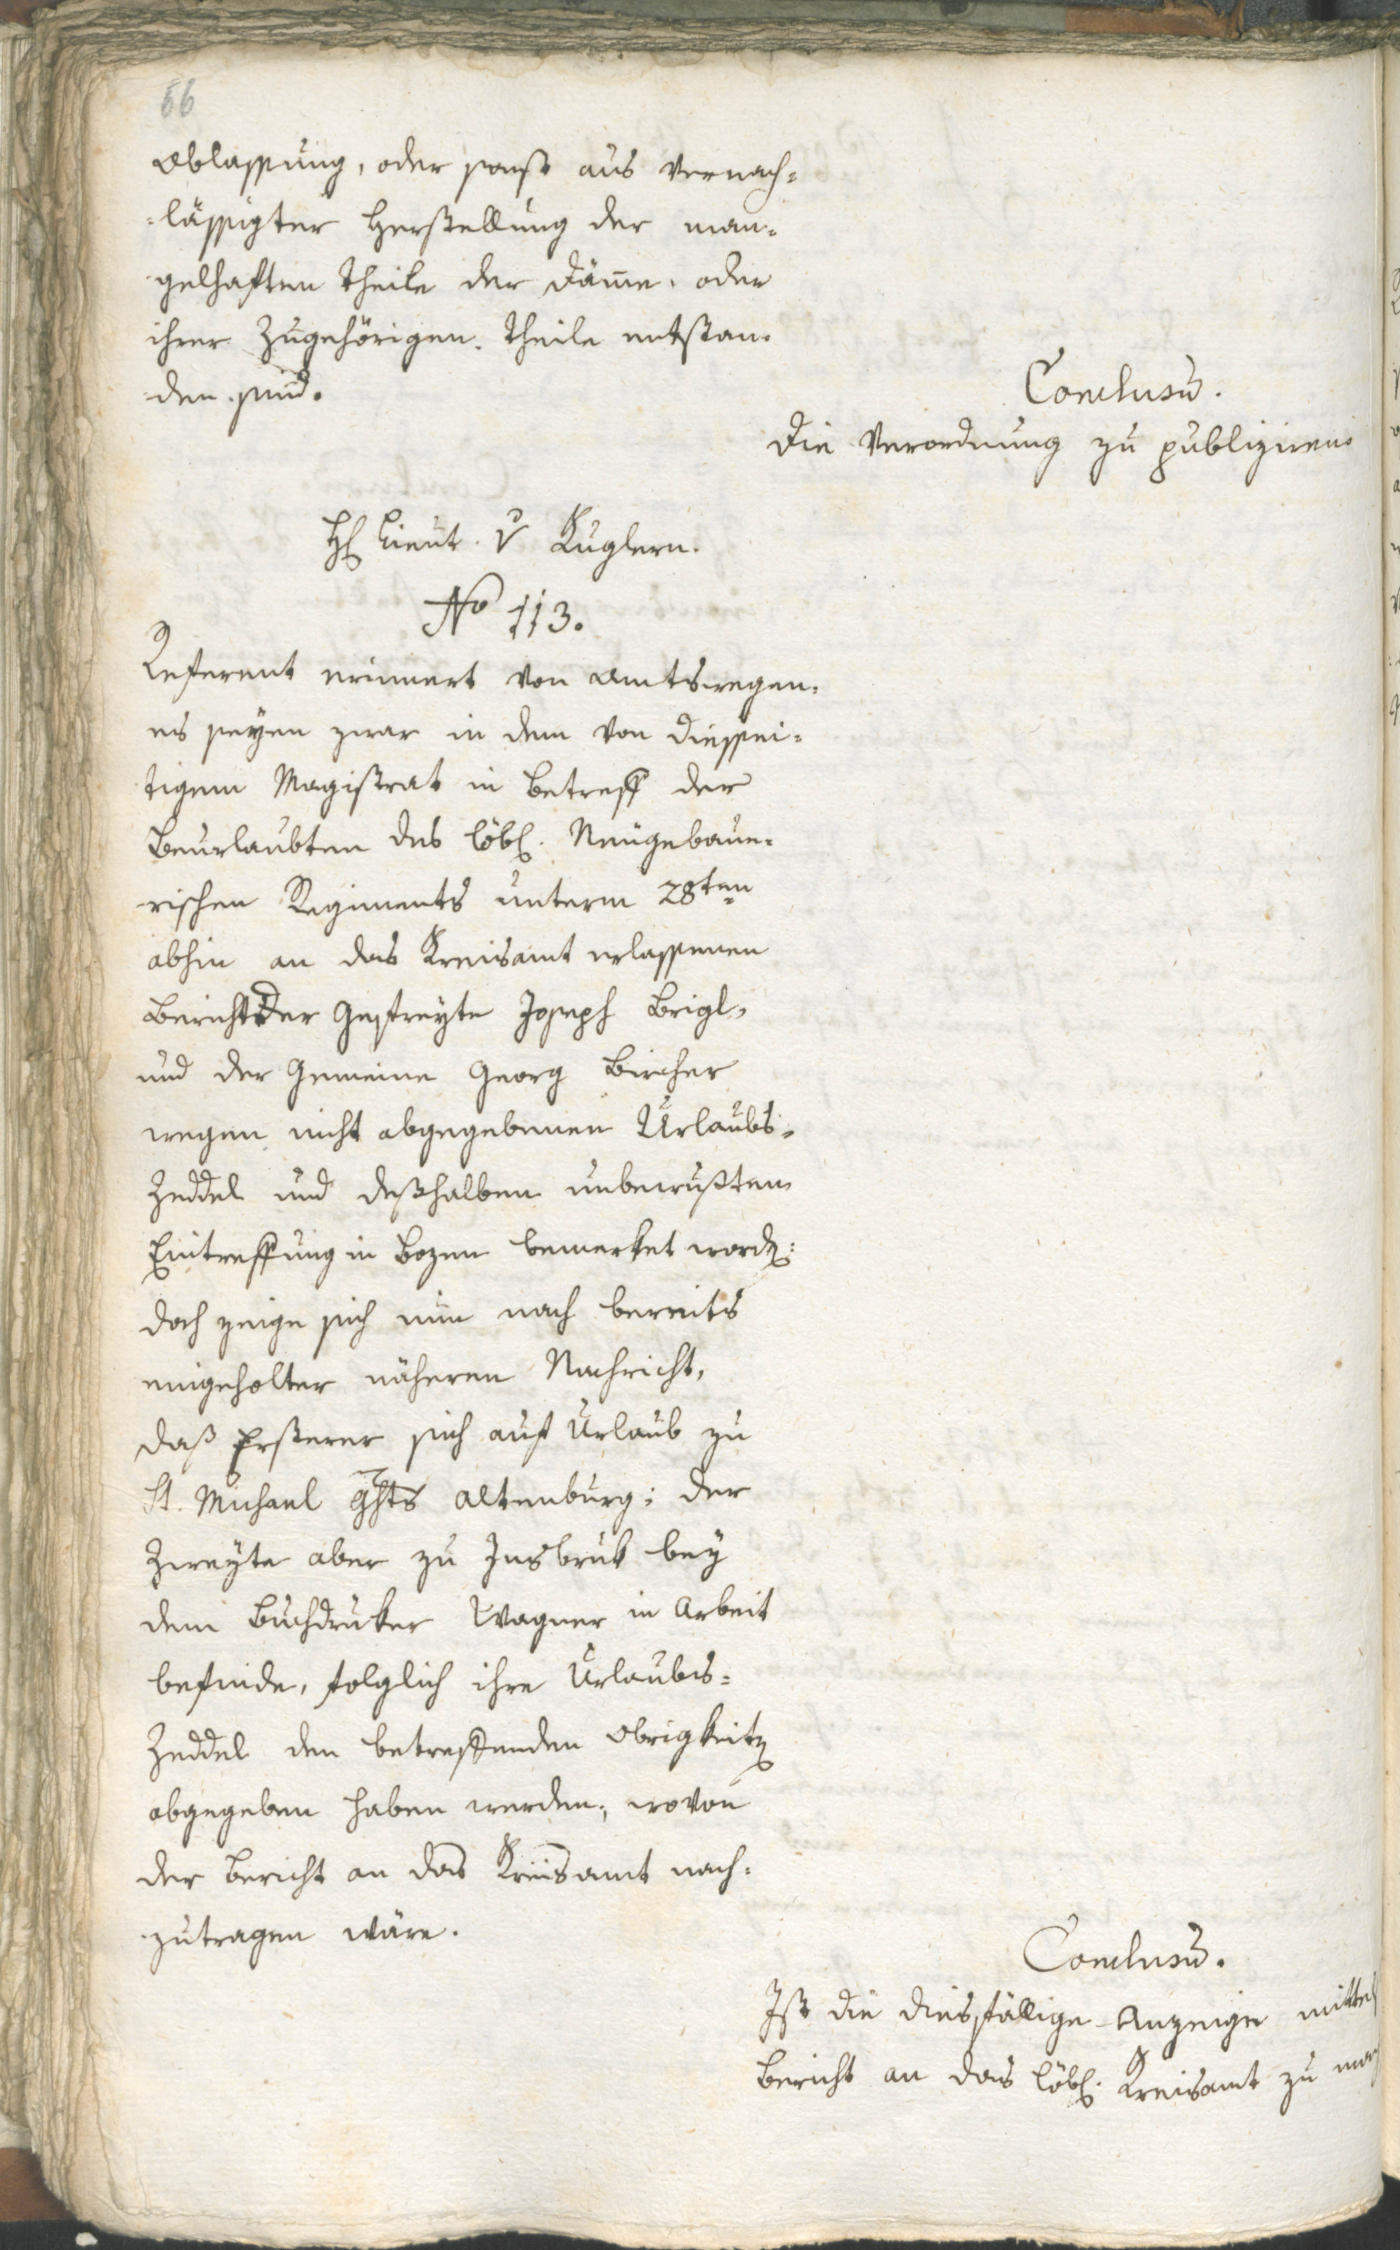 66
Ablassung, oder sonst aus vernach=
=lässigter Herstellung der man=
gelhaften Theile der Däm̄e, oder
ihrer Zugehörigen Theile entstan=
den sind.
Conclusū.
Die Verordnung zu publiziren.
H. Lieut. v Kuglern.
No 113.
Referent erinnert von Amtswegen,
es seyen zwar in dem von diessei=
tigem Magistrat in Betreff der
Beurlaubten des löbl. Neugebaue=
rischen Regiments unterm 28ten
abhin an das Kreisamt erlassenen
Bericht der Gefreyte Joseph Brigl,
und der Gemeine Georg Bircher
wegen nicht abgegebenen Urlaubs=
Zeddel und deßhalben unbewußten
Eintreffung in Bozen bemerket word.:
doch zeige sich nun nach bereits
eingeholter näheren Nachricht,
daß Ersterer sich auf Urlaub zu
St. Michael Ghts Altenburg; der
Zweyte aber zu Insbruk bey
dem Buchdruker Wagner in Arbeit
befinde, folglich ihre Urlaubs=
Zeddel den betreffenden Obrigkeit.
abgegeben haben werden; wovon
der Bericht an das Kreisamt nach=
zutragen wäre.
Conclusū.
Ist die diesfällige Anzeige mittels
Bericht an das löbl. Kreisamt zu